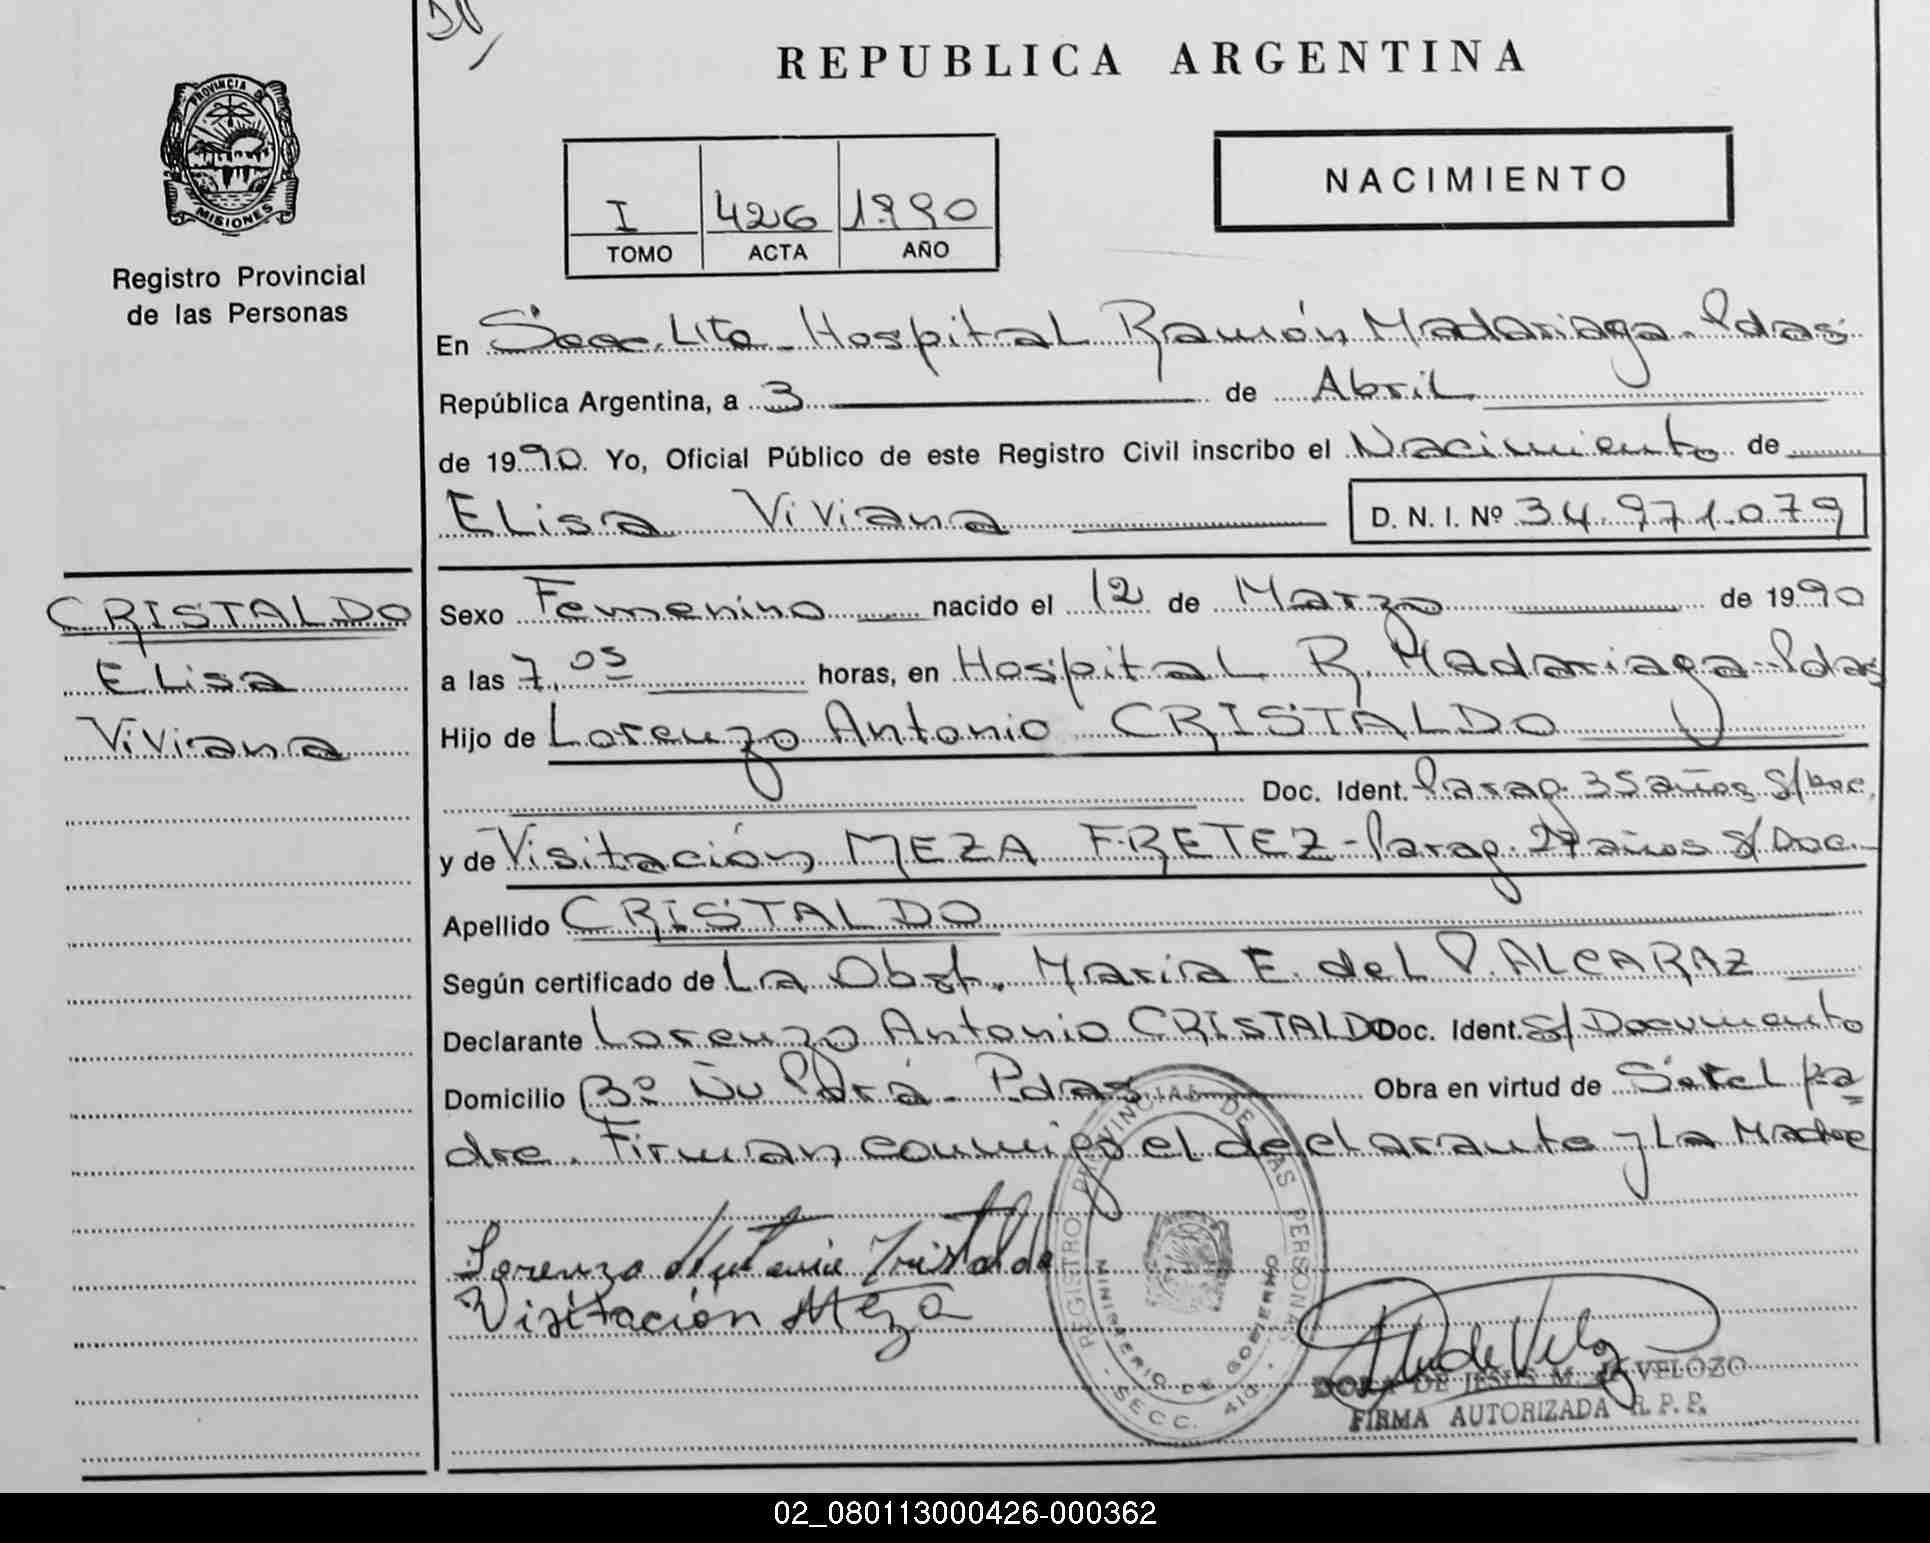 REPUBLICA ARGENTINA
PROVINCIA DE
MISIONES
Registro Provincial
de las Personas
NACIMIENTO
I 426 1990
TOMO ACTA AÑO
En Secc. Lite - Hospital Ramón Madariaga - Pdas
República Argentina, a 3 de Abril
de 1990 Yo, Oficial Público de este Registro Civil inscribo el Nacimiento de
Elisa Viviana D. N. I. Nº 34.971.079
CRISTALDO
Elisa
Viviana
Sexo Femenino nacido el 12 de Marzo de 1990
a las 7,05 horas, en Hospital R. Madariaga - Pdas
Hijo de Lorenzo Antonio CRISTALDO
Doc. Ident. Parag. 35 años S/Doc.
y de Visitación MEZA FRETEZ - Parag. 27 años S/Doc.
Apellido CRISTALDO
Según certificado de La Obst. María E. del V. ALCARAZ
Declarante Lorenzo Antonio CRISTALDO Doc. Ident. S/Documento
Domicilio Bº Ñu Porá - Pdas Obra en virtud de Ser el pa
dre. Firman conmigo el declarante y La Madre
Lorenzo Antonio Cristaldo
Visitación Meza
REGISTRO PROVINCIAL DE LAS PERSONAS
MINISTERIO DE GOBIERNO
- SECC. 413 -
DORA DE JESUS M. de VELOZO
FIRMA AUTORIZADA R. P. P.
02_080113000426-000362